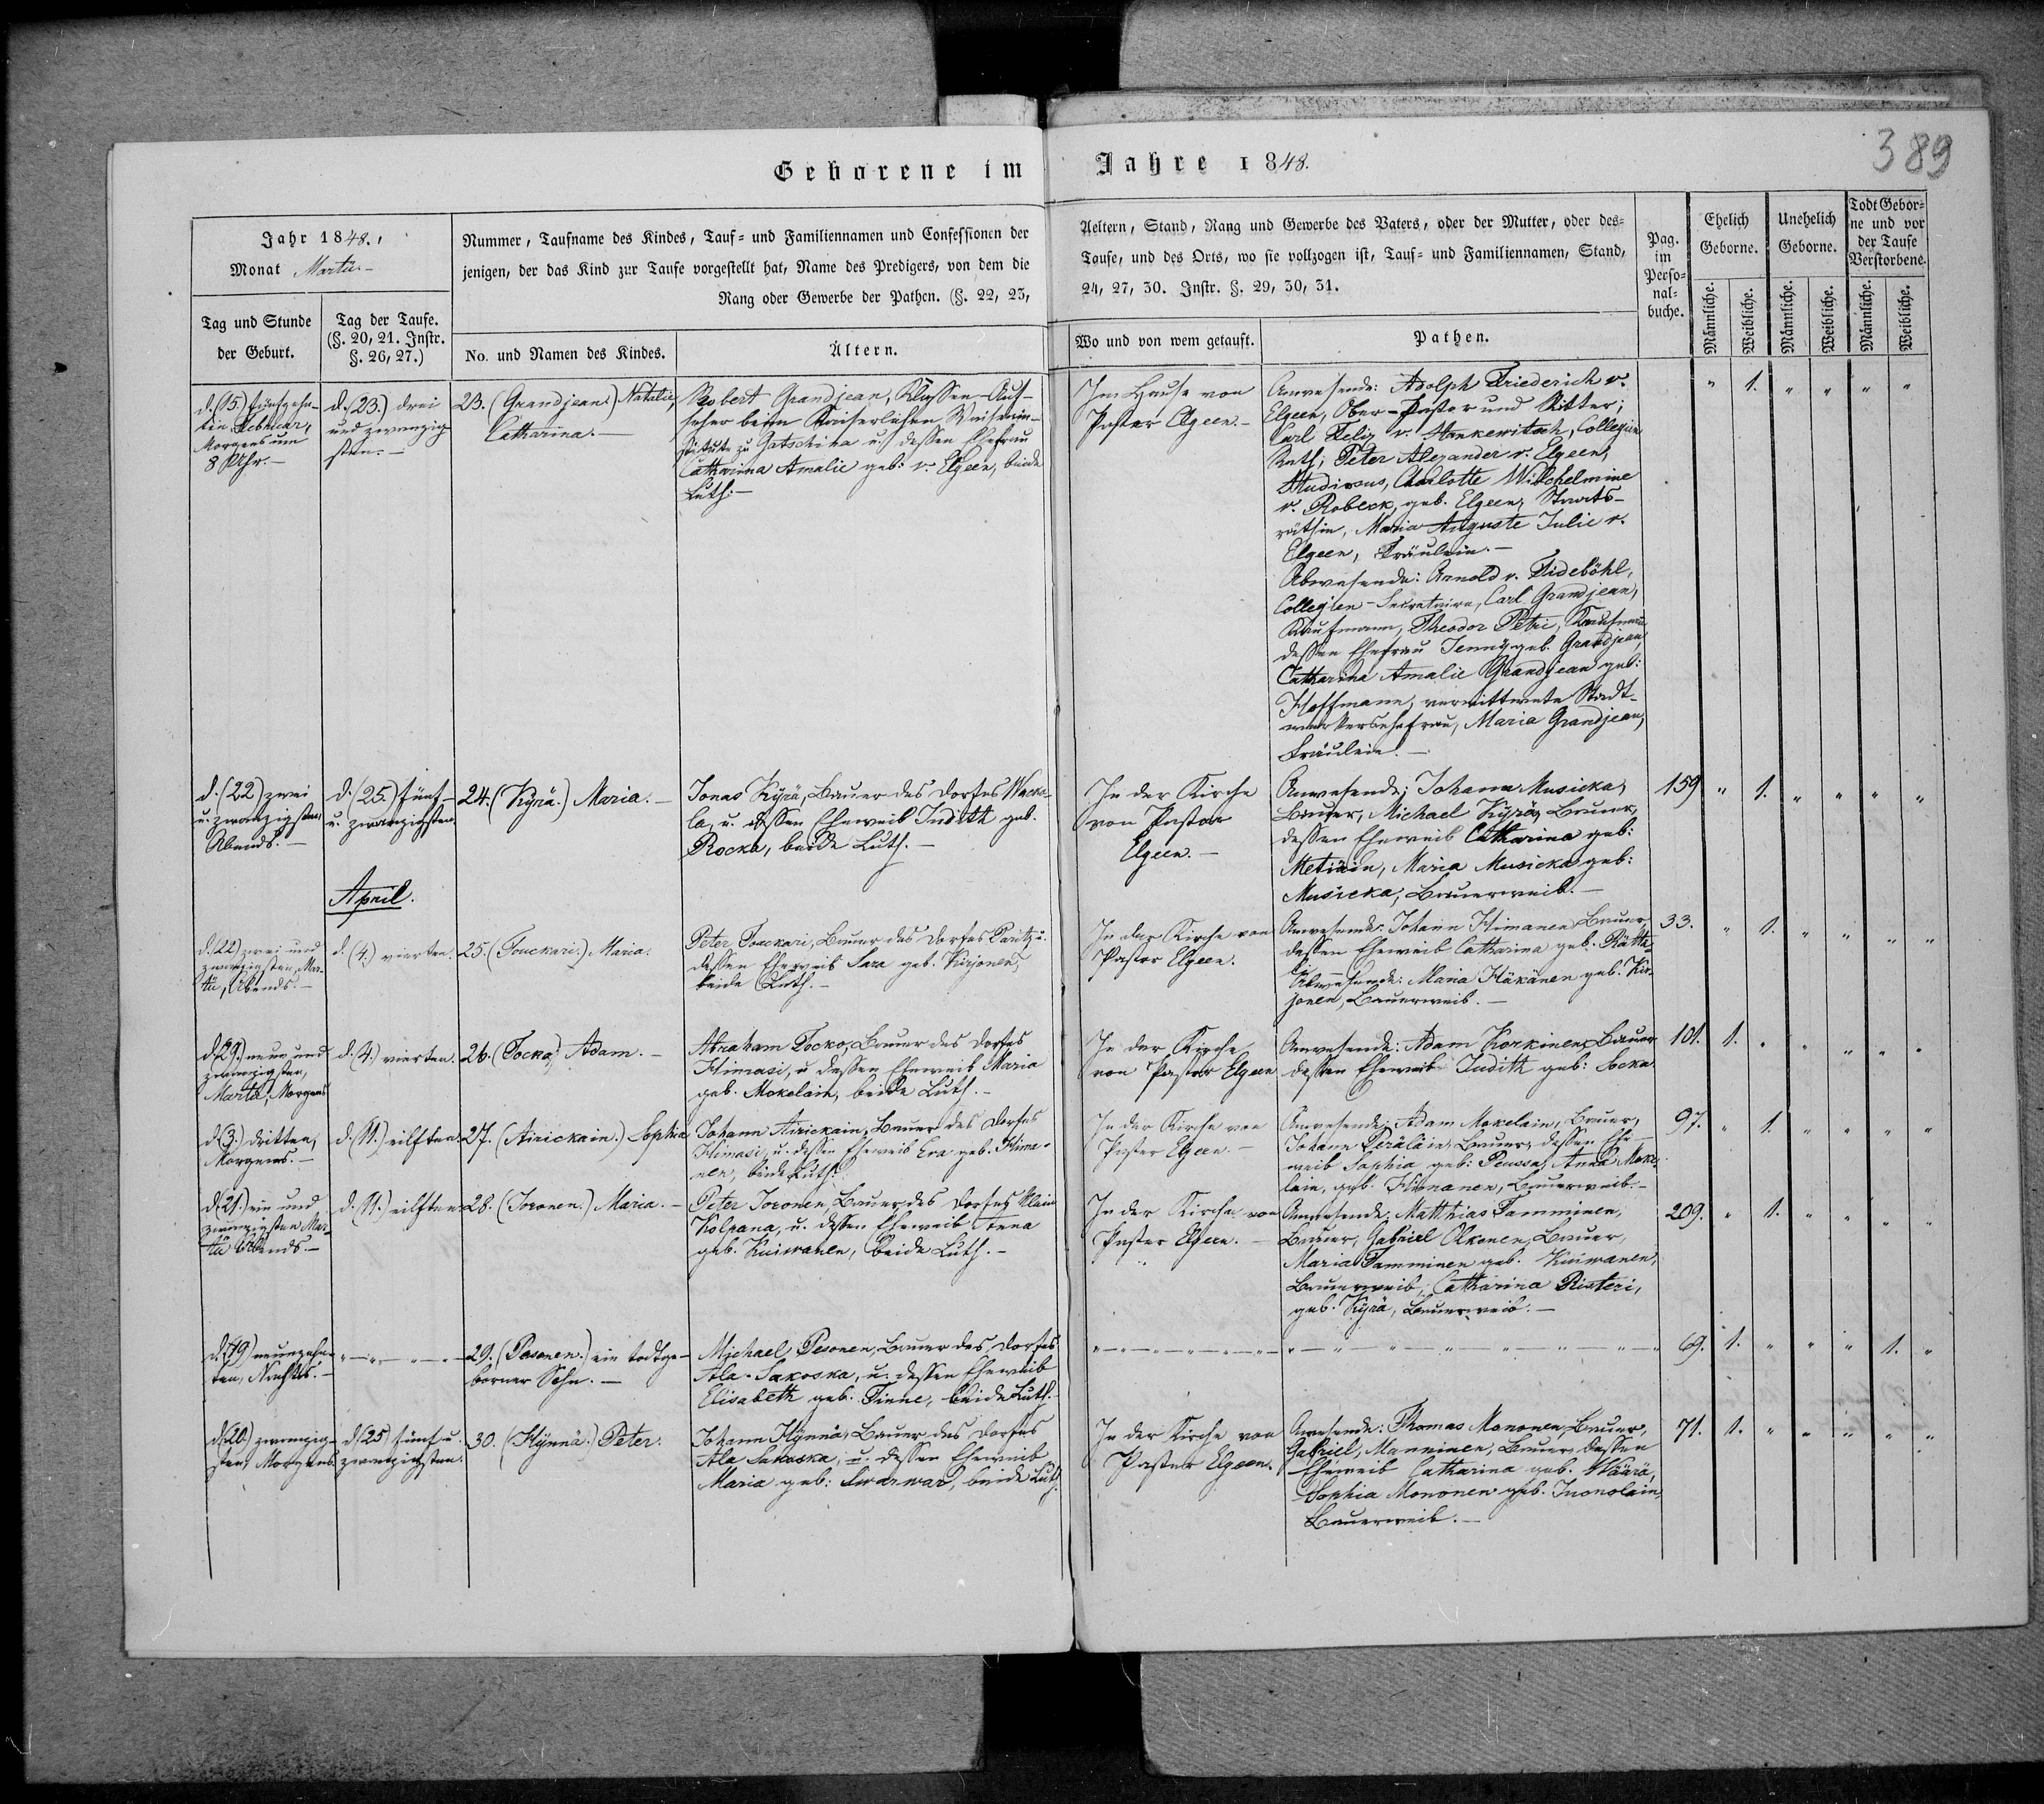 Geborene im Jahre 1848.
389
Jahr 1848.
Monat Martii.
Tag und Stunde der Geburt.
Tag der Taufe. (§. 20, 21. Instr. §. 26, 27.)
Nummer, Taufname des Kindes, Tauf- und Familiennamen und Confessionen der
jenigen, der das Kind zur Taufe vorgestellt hat, Name des Predigers, von dem die
Rang oder Gewerbe der Pathen. (§. 22, 23,
No. und Namen des Kindes.
Ältern.
Aeltern, Stand, Rang und Gewerbe des Vaters, oder der Mutter, oder des-
Taufe, und des Orts, wo sie vollzogen ist, Tauf- und Familiennamen, Stand,
24, 27, 30. Instr. §. 29, 30, 31.
Wo und von wem getauft.
Pathen.
Pag. im Perso-nal-buche.
Ehelich Geborne.
Unehelich Geborne.
Todt Gebor-ne und vor der Taufe Verstorbene.
Männliche.
Weibliche.
Männliche.
Weibliche.
Männliche.
Weibliche.
d. (15.) fünfzehn-
ten Februar,
Morgens um
8 Uhr.—
d. (23.) drei
und zwanzig
sten.—
23. (Grandjean) Natalie,
Catharina.—
Robert Grandjean, Klassen-Auf-
seher beim Kaiserlichen Waisenin-
stitute zu Gatschina u. dessen Ehefrau
Catharina Amalie geb: v. Elgeen, beide
Luth.—
Im Hause von
Pastor Elgeen.—
Anwesende: Adolph Friederich v.
Elgeen, Ober-Pastor und Ritter;
Carl Felix v. Stankewitsch, Collegien
Rath; Peter Alexander v. Elgeen,
Studiosus, Charlotte Wilhelmine
v. Robeck, geb. Elgeen, Staats-
räthin, Maria Auguste Julie v.
Elgeen, Fräulein.—
Abwesende: Arnold v. Tideböhl,
Collegien-Secretaire, Carl Grandjean,
Kaufmann, Theodor Petri, Kaufmann
dessen Ehefrau Jenny geb. Grandjean,
Catharina Amalie Grandjean geb:
Hoffmann, verwittwete Stadt-
Maria Grandjean,
Fräulein.—
" 1. " " " "
d. (22) zwei
u. zwanzigsten,
Abends.—
d. (25.) fünf-
u. zwanzigsten.
24. (Kyrä.) Maria.—
Jonas Kyrä, Bauer des Dorfes Wacka-
la, u. dessen Eheweib Judith geb.
Rocka, beide Luth.—
In der Kirche
von Pastor
Elgeen.—
Anwesende: Johann Musicka,
Bauer, Michael Kyrä, Bauer,
dessen Eheweib Catharina geb:
Metiäin, Maria Musicka geb:
Musicka, Bauerweib.—
159 " 1. " " " "
April.
d. (22) zwei und
zwanzigsten Mar-
tii, Abends.—
d. (4.) vierten.
25. (Touckari.) Maria.
Peter Touckari, Bauer des Dorfes Paritz u.
dessen Eheweib Sara geb. Kirjonen,
beide Luth.—
In der Kirche von
Pastor Elgeen.
Anwesende: Johann Himanen, Bauer
dessen Eheweib Catharina geb. Rätte
Abwesende: Maria Häkänen geb. Kir-
jonen, Bauerweib.—
33. " 1. " " " "
d. (29.) neun und
zwanzigsten,
Martii, Morgens
d. (4.) vierten.
26. (Tocka) Adam.—
Abraham Tocko, Bauer des Dorfes
Himasi, u dessen Eheweib Maria
geb. Mokelain, beide Luth.—
In der Kirche
von Pastor Elgeen
Anwesende: Adam Korkinen, Bauer
dessen Eheweib Judith geb: Socka
101. 1. " " " " "
d. (3.) dritten,
Morgens.—
d. (11.) eilften.
27. (Airickain.) Sophia
Johann Airickain, Bauer des Dorfes
Himasi, u. dessen Eheweib Eva geb. Hima-
nen, beide Luth.
In der Kirche von
Pastor Elgeen.—
Anwesende: Adam Mokelain, Bauer,
Johann Peräläin, Bauer, dessen Ehe-
weib Sophia geb: Peussa, Anna Moke-
lain, geb. Himanen, Bauerweib.—
97. " 1. " " " "
d. (21.) ein und
zwanzigsten Mar-
tii Abends.—
d. (11.) eilften
28. (Toronen.) Maria.—
Peter Toronen, Bauer des Dorfes Klein
Kolpana, u. dessen Eheweib Anna
geb. Kuiwanen, beide Luth.—
In der Kirche von
Pastor Elgeen.—
Anwesende: Matthias Tamminen,
Bauer, Gabriel Olkonen, Bauer,
Maria Tamminen geb. Kuiwanen,
Bauerweib, Catharina Risteri,
geb. Kyrä, Bauerweib.—
209. " 1. " " " "
d. (19) neunzehn-
ten, Nachts.—
29. (Pasonen.) ein todtge-
borner Sohn.—
Michael Pesonen, Bauer des Dorfes
Ala-Sakoska, u. dessen Eheweib
Elisabeth geb. Tinne, beide Luth.
69. 1. " " " 1. "
d. (20.) zwanzig-
sten, Morgens.
d. (25) fünf u.
zwanzigsten.
30. (Hynnä.) Peter.
Johann Hynnä, Bauer des Dorfes
Ala Sakoska, u. dessen Eheweib
Maria geb: beide Luth.
In der Kirche von
Pastor Elgeen.
Anwesende: Thomas Mononen, Bauer,
Gabriel, Manninen, Bauer, dessen
Eheweib Catharina geb. Wäärä,
Sophia Mononen geb. Inonolain,
Bauerweib.—
71. 1. " " " " "